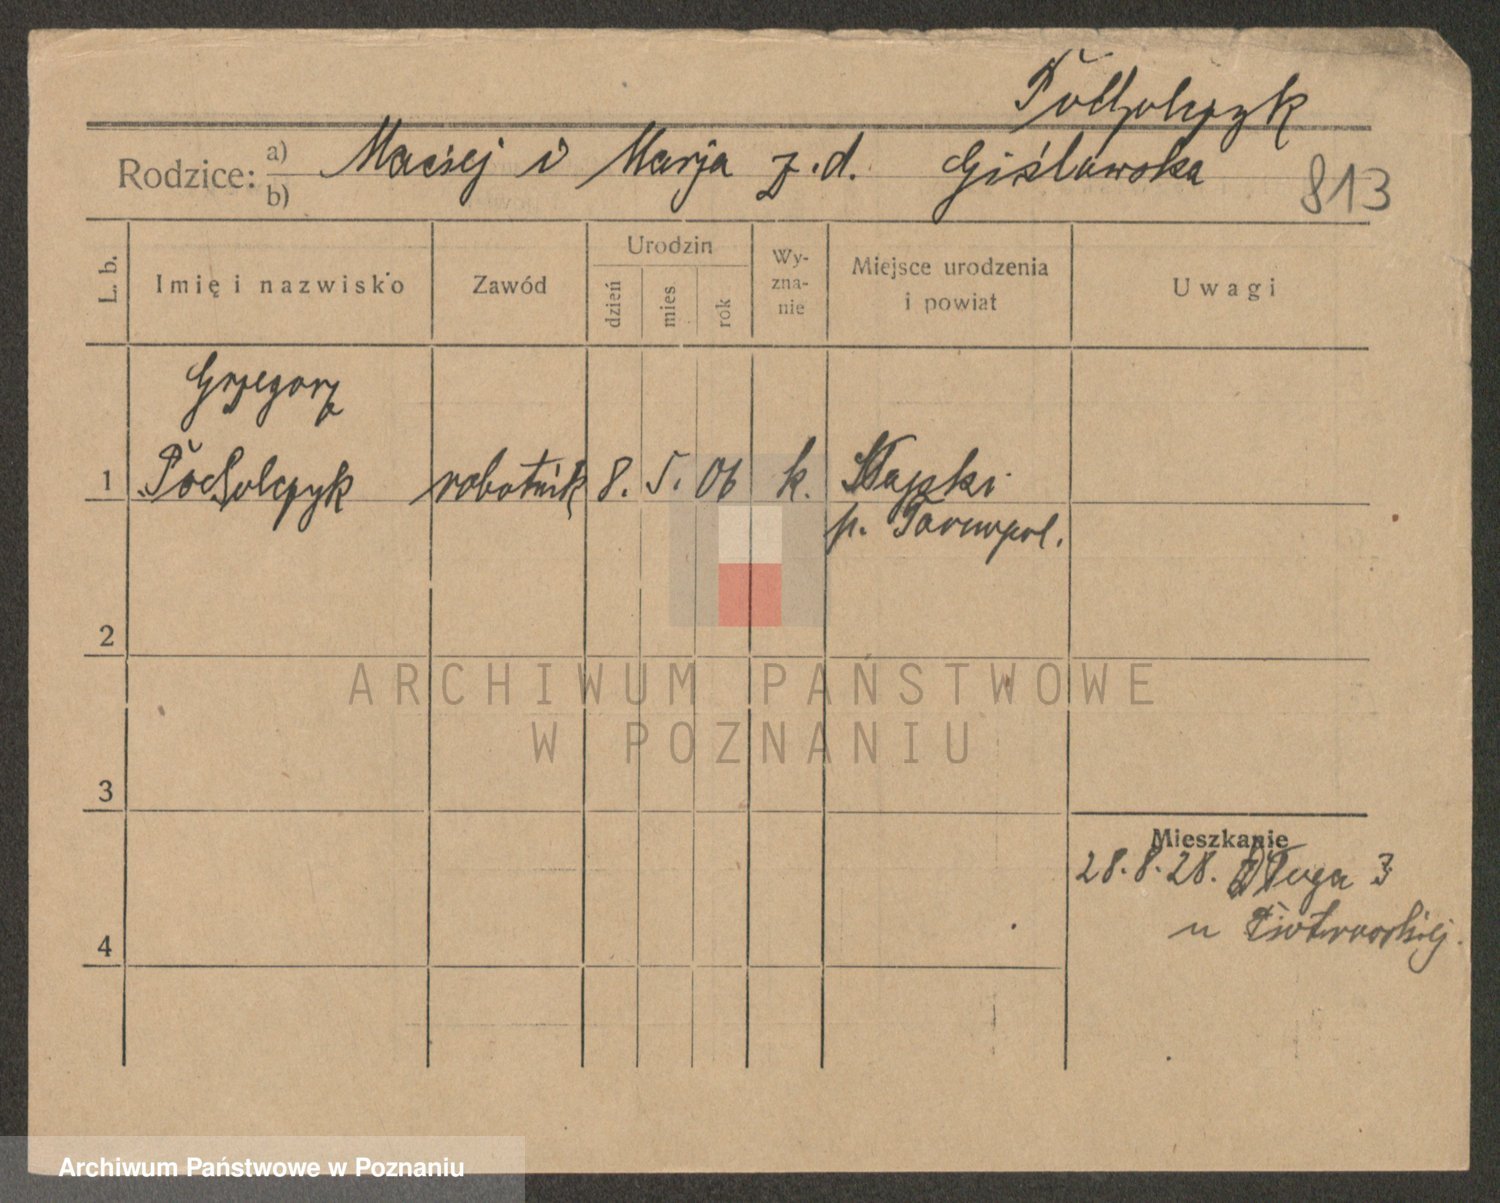 Pocholczyk
Rodzice: a) b) Maciej i Marja z. d. Giślawska
813
L. b.
Imię i nazwisko
Zawód
Urodzin
dzień
mies
rok
Wy-
zna-
nie
Miejsce urodzenia
i powiat
Uwagi
Grzegorz
1 Pocholczyk robotnik 8. 5. 06 k.
p. Tarnopol.
2
3
4
Mieszkanie
28.8.28. Długa 3
u
ARCHIWUM PAŃSTWOWE
W POZNANIU
Archiwum Państwowe w Poznaniu